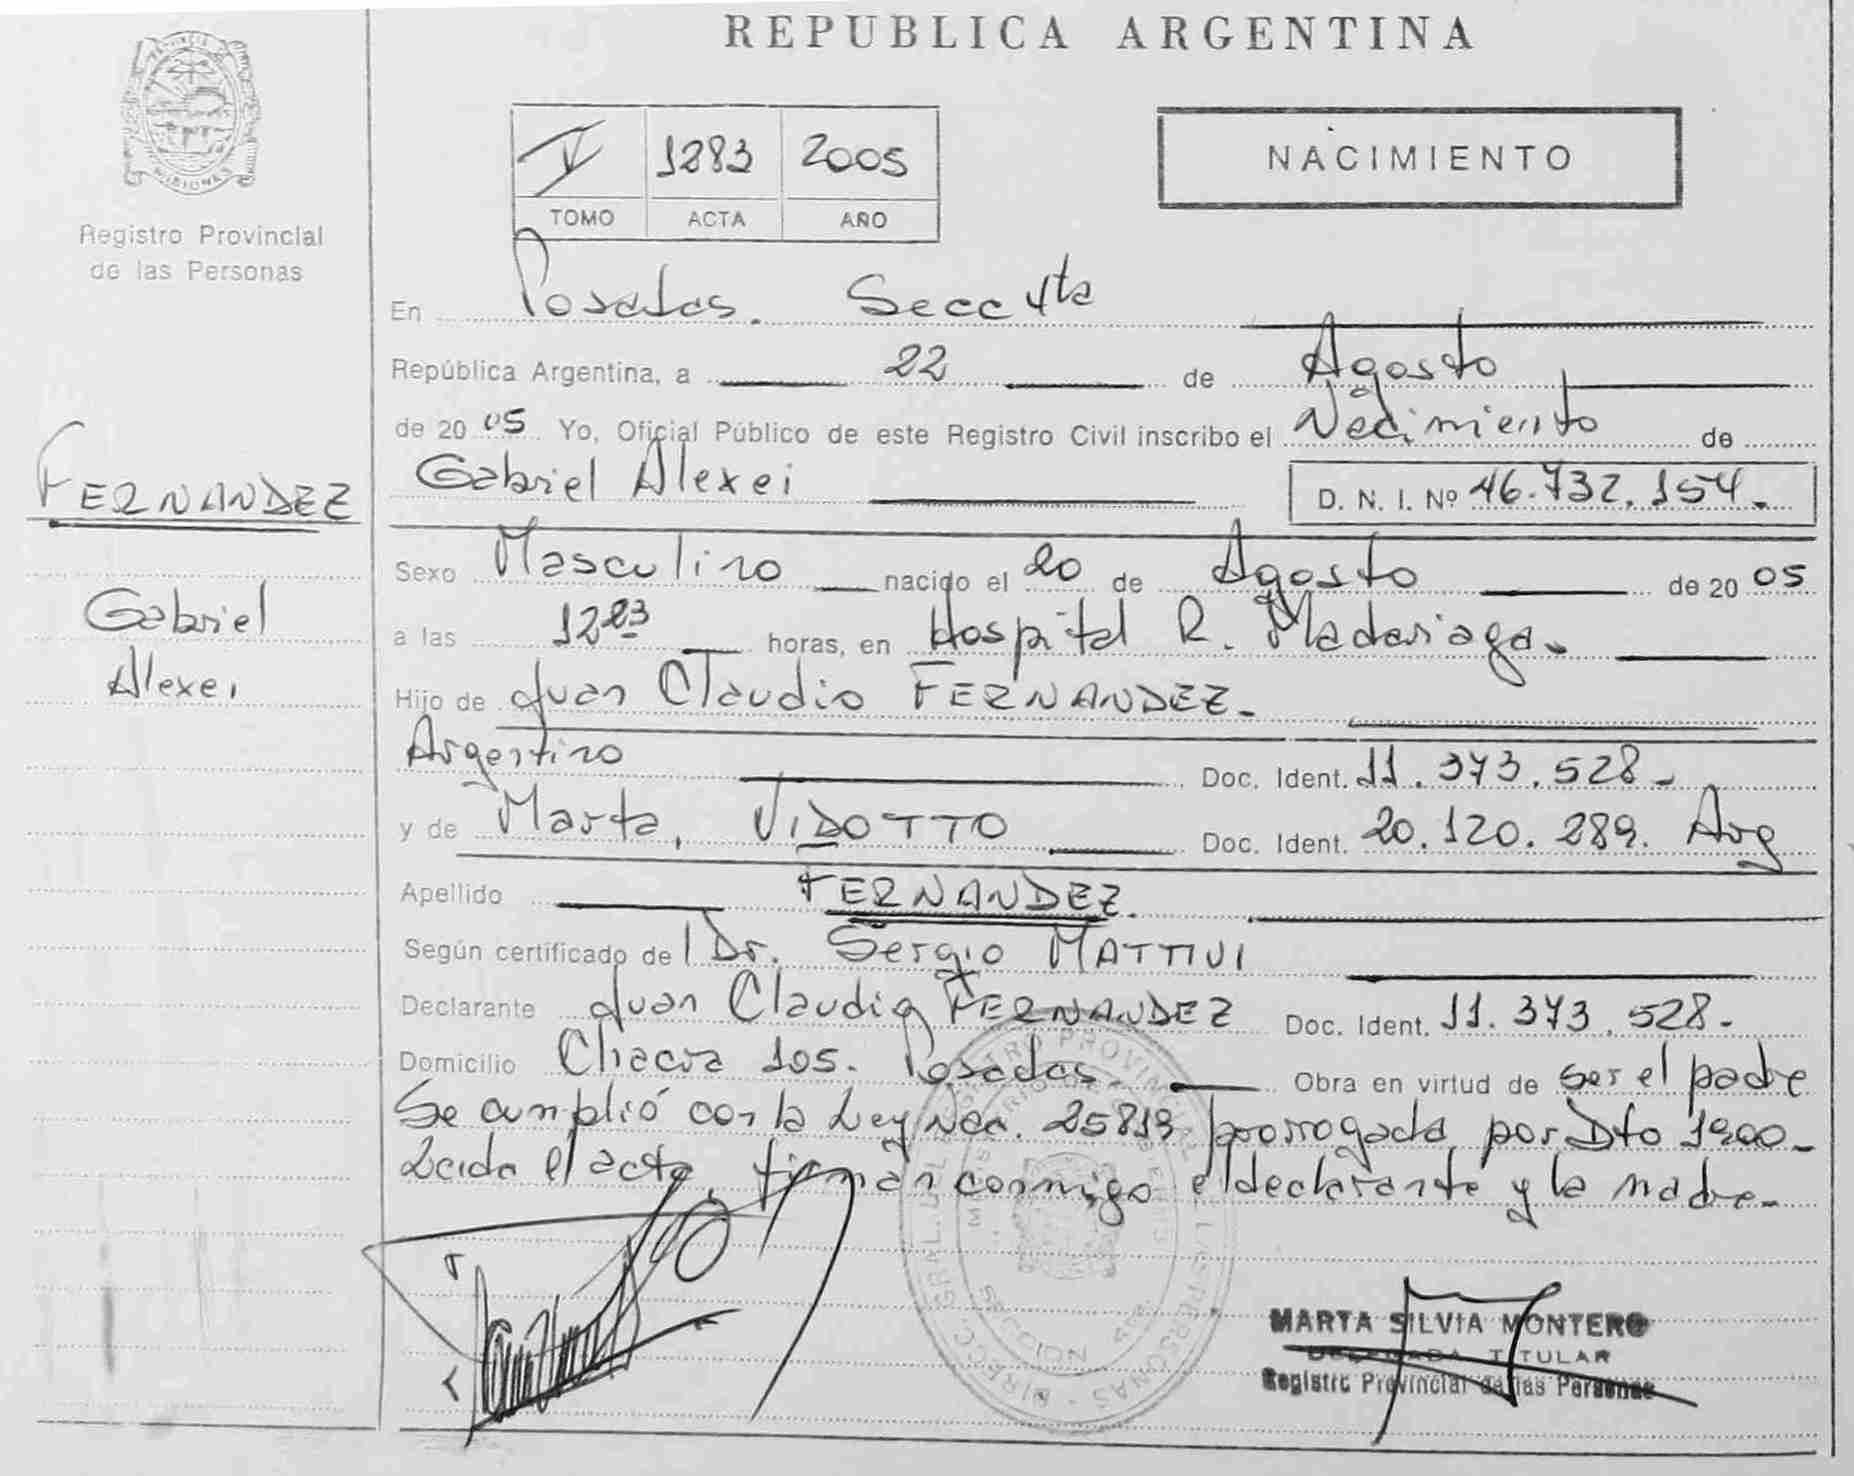 REPUBLICA ARGENTINA
PROVINCIA DE MISIONES
Registro Provincial
de las Personas
V 1283 2005
TOMO ACTA AÑO
NACIMIENTO
En Posadas. Secc 4ta
República Argentina, a 22 de Agosto
de 2005 Yo, Oficial Público de este Registro Civil inscribo el Nacimiento de
Gabriel Alexei D. N. I. Nº 46.732.154.
FERNANDEZ
Gabriel
Alexei
Sexo Masculino nacido el 20 de Agosto de 2005
a las 12 23 horas, en Hospital R. Madariaga.
Hijo de Juan Claudio FERNANDEZ.
Argentino Doc. Ident. 11.373.528.
y de Marta, VIDOTTO Doc. Ident. 20.120.289. Arg
Apellido FERNANDEZ.
Según certificado de Dr. Sergio MATTIVI
Declarante Juan Claudio FERNANDEZ Doc. Ident. 11.373.528.
Domicilio Chacra 105. Posadas. Obra en virtud de ser el padre
Se cumplió con la Ley Nac. 25819 prorrogada por Dto 1900.
Leida el acta, firman conmigo el declarante y la madre.
DIRECC. GRAL. DEL REGISTRO PROVINCIAL DE LAS PERSONAS
MINISTERIO DE GOBIERNO
SECCION 4ta.
MARTA SILVIA MONTERO
DELEGADA TITULAR
Registro Provincial de las Personas